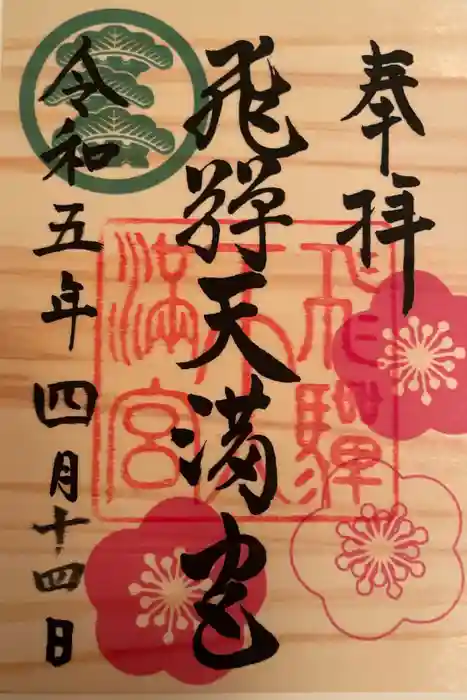 奉拝
飛騨天満宮
令和五年四月十四日
飛驒
天
満宮